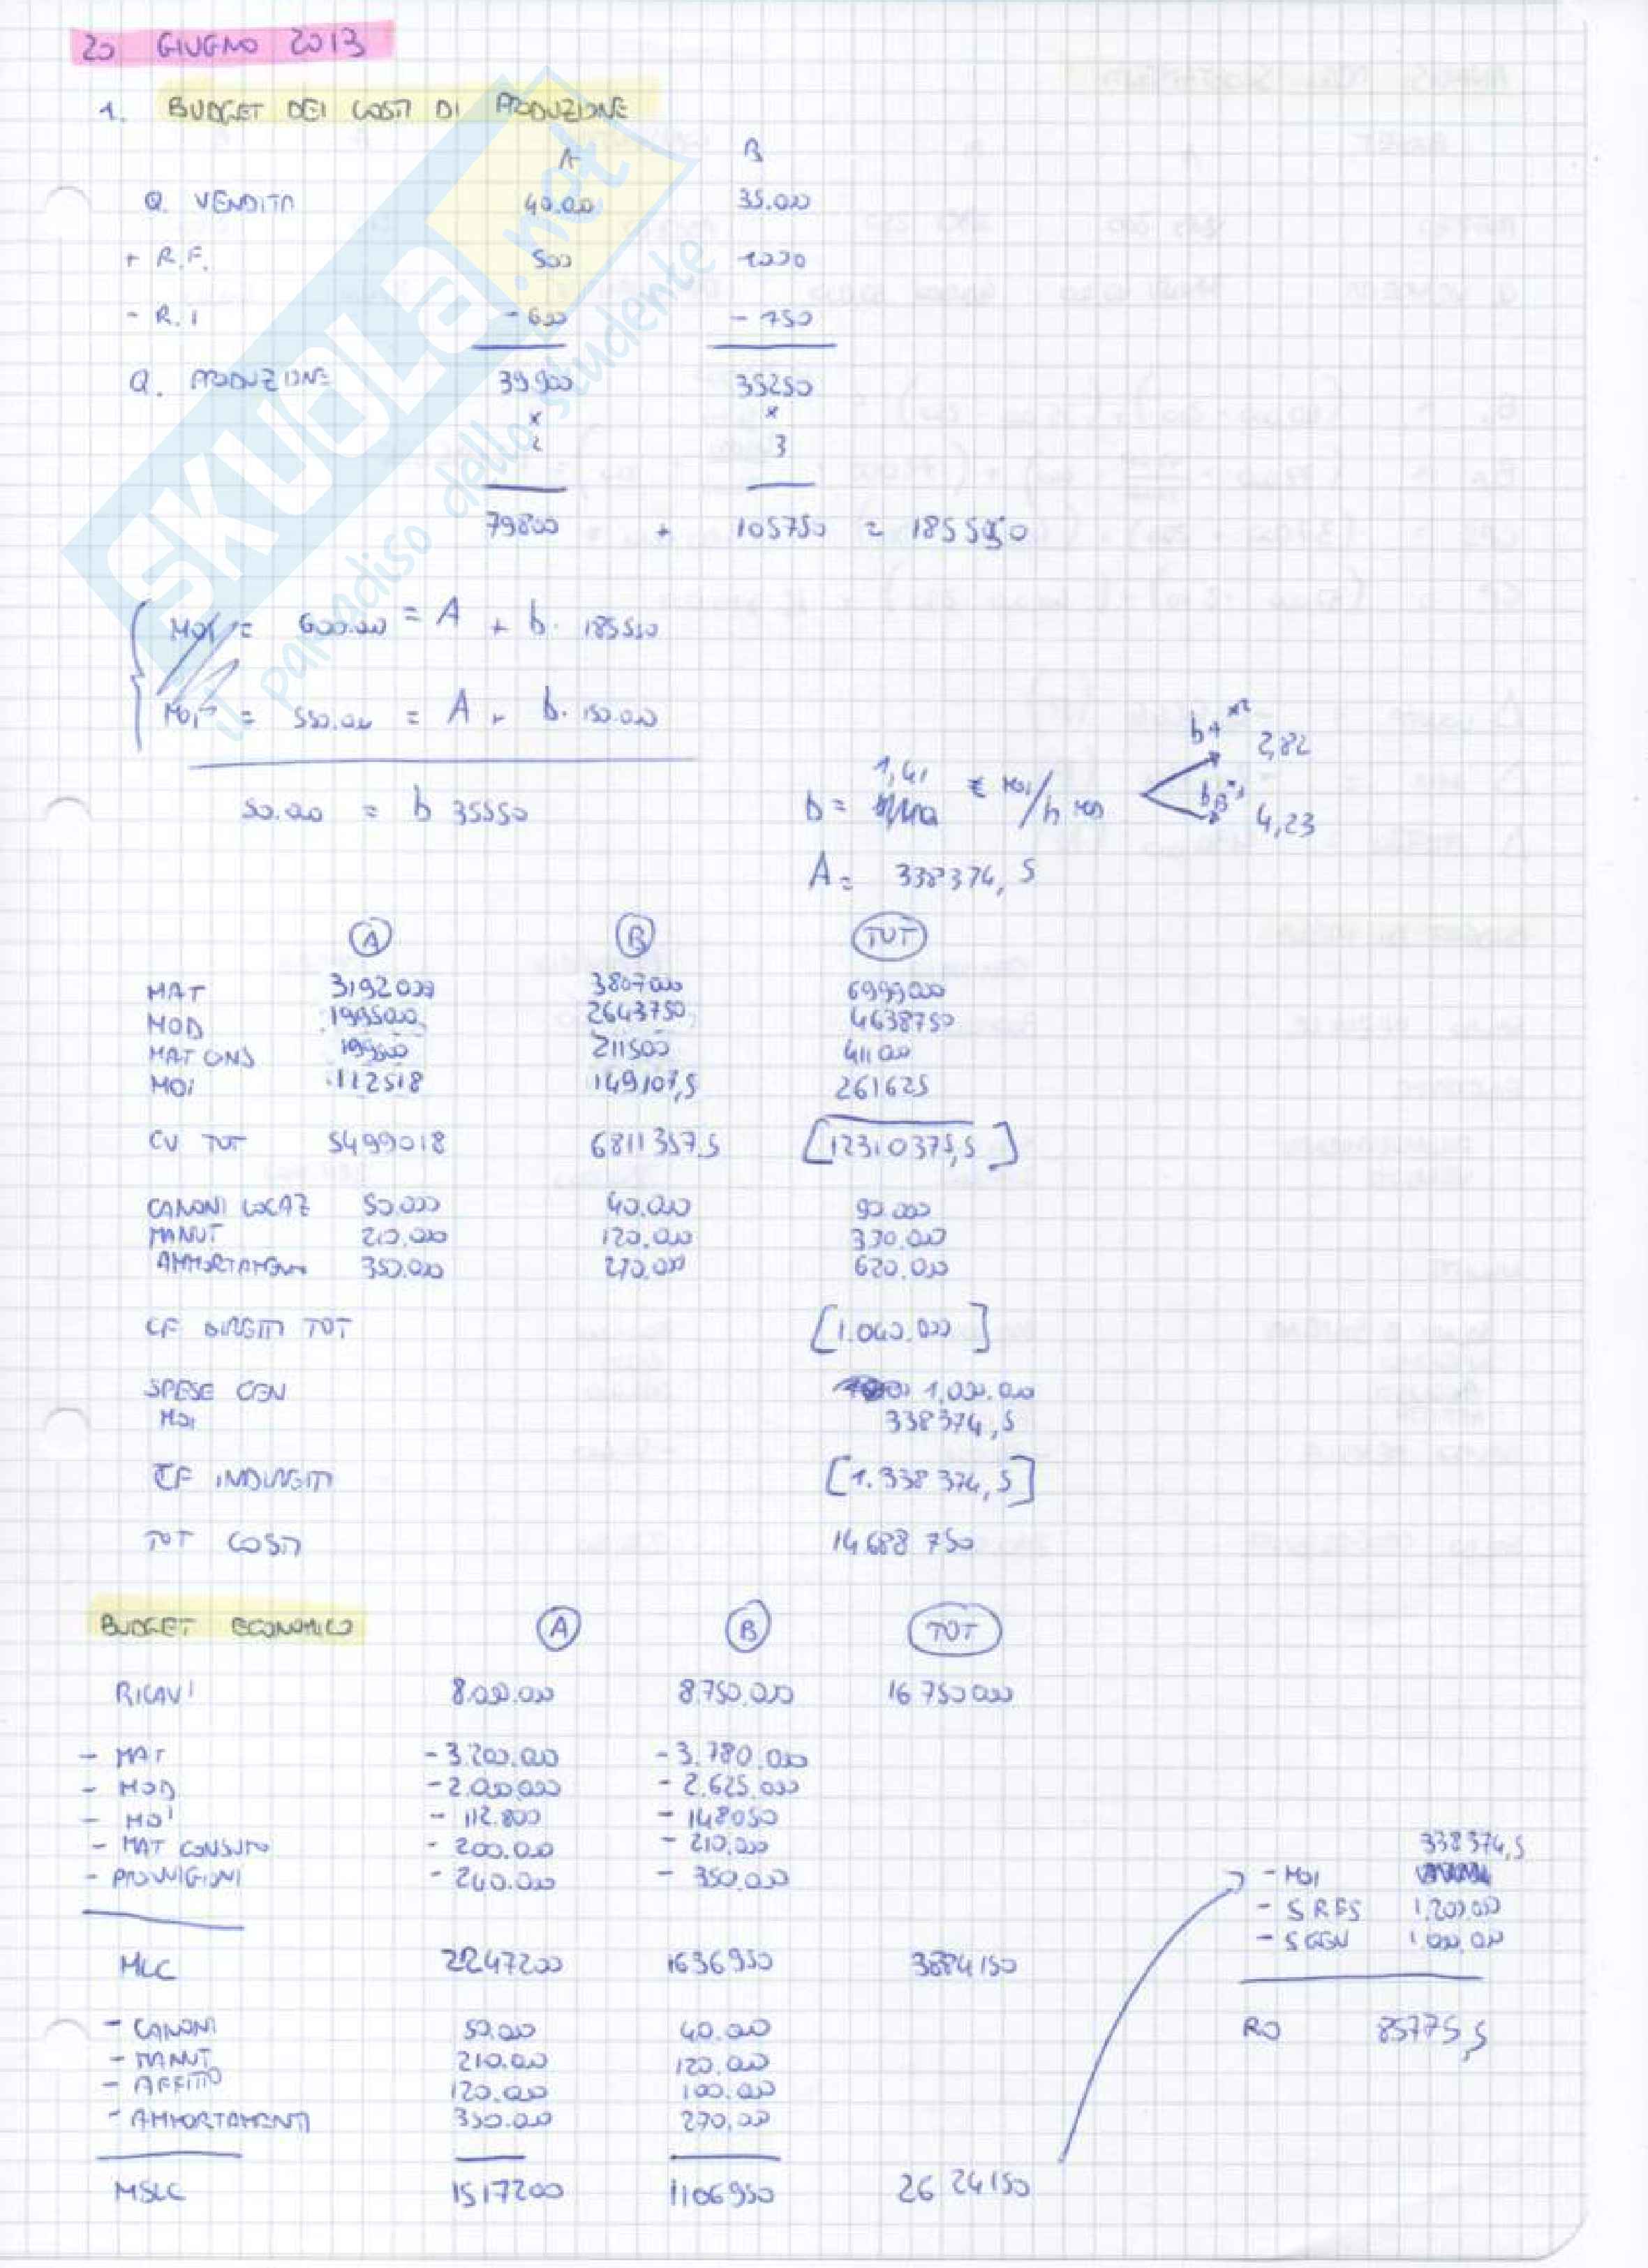 20 GIUGNO 2013
1. BUDGET DEI COSTI DI PRODUZIONE
A B
Q. VENDITA 40.000 35.000
+ R.F. 500 1000
- R.I - 600 - 750
Q. PRODUZIONE 39900 35250
x x
2 3
79800 + 105750 = 185550
MOI = 600.000 = A + b. 185550
MOI = 550.000 = A + b. 150.000
50.000 = b 35550
b = 1,41 € MOI/h MOD
bA x2 2,82
bB x3 4,23
A = 338374,5
A B TOT
MAT 3192000 3807000 6999000
MOD 1995000 2643750 4638750
MAT CONS 199500 211500 411000
MOI 112518 149107,5 261625
CV TOT 5499018 6811357,5 [12310375,5]
CANONI LOCAZ 50.000 40.000 90.000
MANUT 210.000 120.000 330.000
AMMORTAMENTI 350.000 270.000 620.000
CF DIRETTI TOT [1.040.000]
SPESE GEN 1.000.000
MOI 338374,5
CF INDIRETTI [1.338374,5]
TOT COSTI 14688750
BUDGET ECONOMICO A B TOT
RICAVI 8.000.000 8.750.000 16750000
- MAT - 3.200.000 - 3.780.000
- MOD - 2.000.000 - 2.625.000
- MOI - 112.800 - 148050
- MAT CONSUMO - 200.000 - 210.000
- PROVVIGIONI - 240.000 - 350.000
MLC 2247200 1636950 3884150
- CANONI 50.000 40.000
- MANUT 210.000 120.000
- AFFITTO 120.000 100.000
- AMMORTAMENTI 350.000 270.000
MSLC 1517200 1106950 2624150
- MOI 338374,5
- S RES 1.200.000
- S GEN 1.000.000
RO 85775,5
SKUOLA.net
il paradiso dello studente